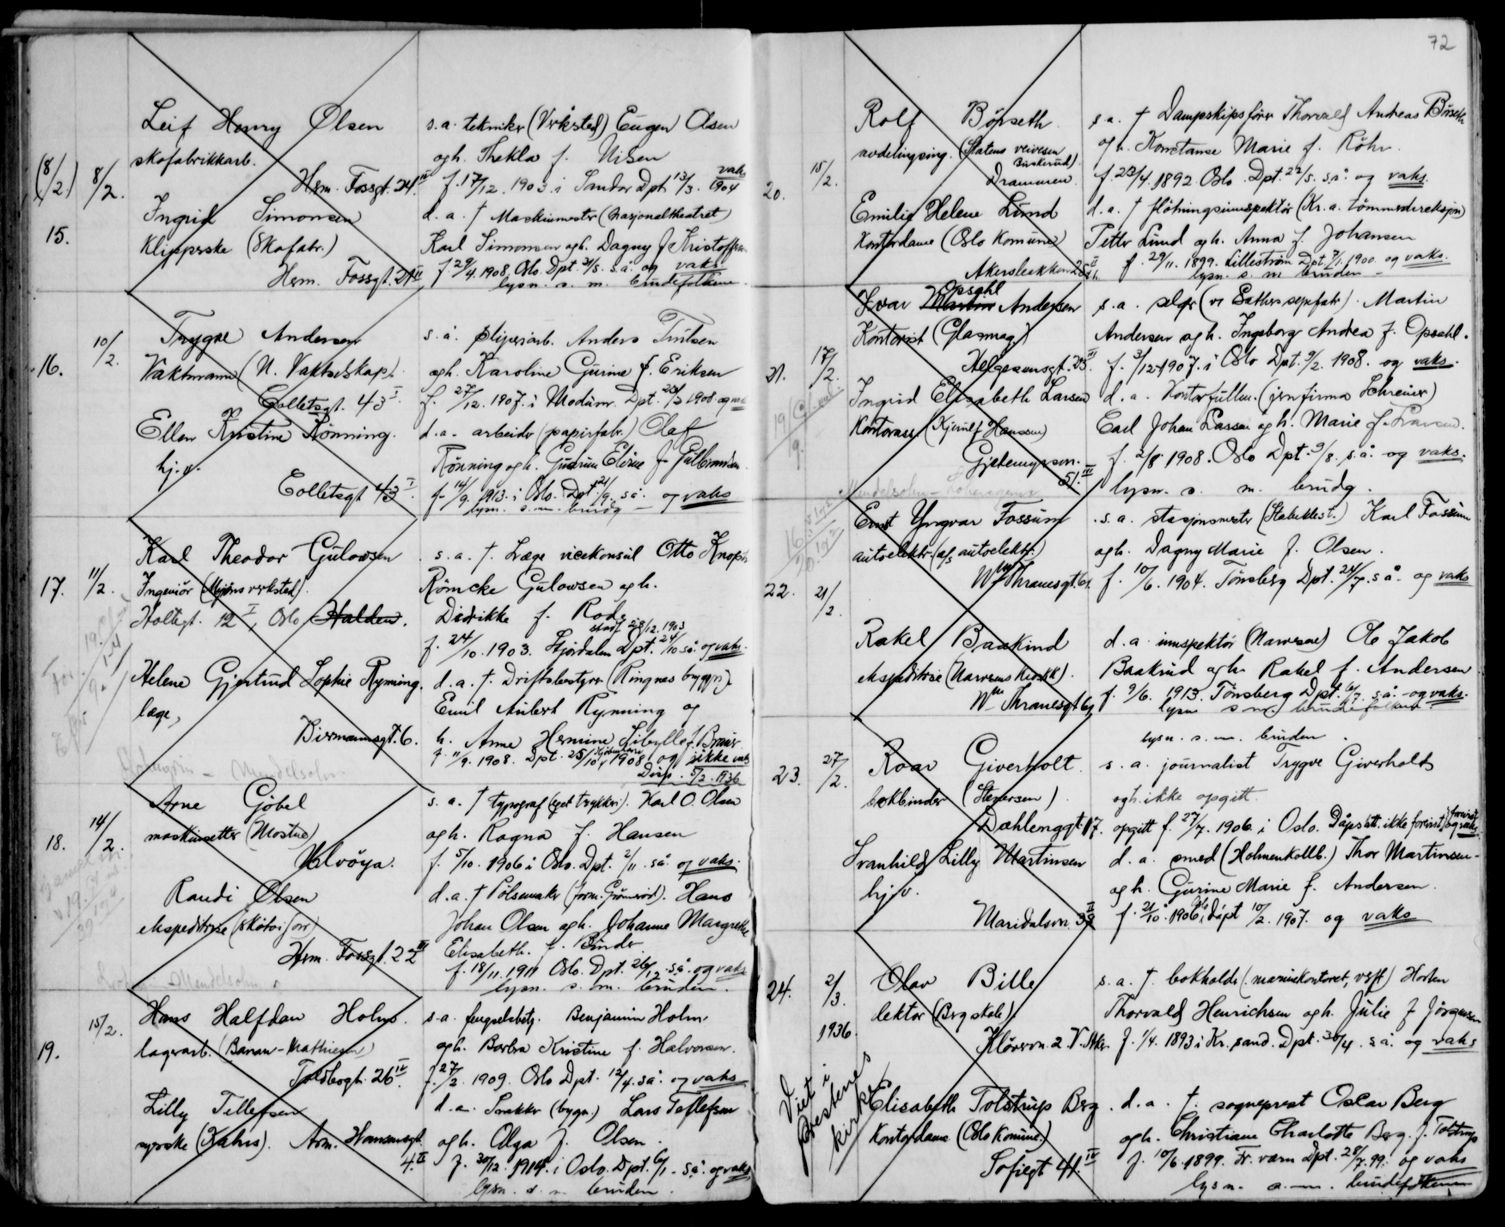 72
Leif Henry Olsen
s.a. tekniker (Vrksted) Eugen Olsen
skofabrikkarb.
og h. Thekla f. Nilsen
(8/2.) 8/2. Herm. Fossgt. 24 IV
f. 17/12. 1903 i Sandar Dpt. 13/3. 1904 vaks
15. Ingrid Simonsen
d.a. † Maskinmester (Nasjonalteatret)
Klipperske (Skofabr.)
Karl Simonsen og h. Dagny f. Kristoffersen
Herm. Fossgt. 24 IV
f. 29/4. 1908, Oslo. Dpt. 31/5. s.å. og vaks
lysn. s. m. brudefolkene.
10/2. Trygve Andersen
s.a. sliperiarb. Anders
16. Vaktmann (N. Vaktselskap)
og h. Karoline Gurine f. Eriksen
Colletsgt. 43 I
f. 27/12. 1907. i Modum. Dpt. 1908 og vaks
Ellen Kristine Rønning.
d.a. arbeider (papirfabr.) Olaf
hj.v.
Rønning og h. Gudrun Elise f. Gulbrandsen
Colletsgt 43 I.
f. 14/9. 1913. i Oslo. Dpt. 21/9. s.å. og vaks
lysn. s. m. brudg.
Karl Theodor Gulowsen
s.a. †. Læge visekonsul Otto Knoph
17. 11/2. Ingeniør (Myrens verksted).
Römcke Gulowsen og h.
Holtegt. 12 I, Oslo Halden.
Didrikke f. Rode
f. 24/10. 1903. Stjørdalen Dpt. 24/10 s.å. og vaks.
Helene Gjertrud Sophie Rynning.
d.a. †. Driftsbestyrer (Ringnes bryggeri)
læge,
Emil Aubert Rynning og
Birmannsgt. 6.
h. Anne Hermine Sibylle f. Brun
f. 11/9. 1908. Dpt. 25/10 1908, og ikke vaks
Disp. 5/2. 1936
Mendelsohn
14/2. Arne Göbel
s.a. † typograf (eget trykkeri). Karl O. Olsen
18. maskinsetter (Mostue)
og h. Ragna f. Hansen
Malvöya.
f. 5/10. 1906 i Oslo. Dpt. 2/11. s.å. og vaks.
Randi Olsen
d.a. † Pölsemaker (form. Grönerud). Hans
ekspeditrise (skotöiforr)
Johan Olsen og h. Johanne Margrethe
Herm. Fossgt. 22 III
Elisabeth. f. Binde.
f. 18/11. 1911 Oslo. Dpt. 26/12. s.å. og vaks
lysn. s. m. bruden.
Mendelsohn
15/2. Hans Halfdan Holm.
s.a. fengselsbetj. Benjamin Holm
19. lagerarb. (Banan-Mathiesen)
og h. Borbra Kristine f. Halvorsen.
Toldbogt. 26 IV.
f. 27/2. 1909. Oslo Dpt. 12/4. s.å. og vaks
Lilly Tellefsen
d.a. Snekker (bygn.) Lars Tellefsen
syerske (Kahrs). Arn. Hansensgt.
og h. Olga f. Olsen.
4. II
f. 30/12. 1914. i Oslo. Dpt. 6/1. s.å. og vaks
lysn. s. m. bruden.
Rolf Börseth
s.a. † Dampskipsförer Thorvald Andreas Börseth
avdelingsing. (Statens veivesen Buskerud).
og h. Konstanse Marie f. Röhr.
20. 15/2. Drammen.
f. 23/4. 1892 Oslo. Dpt. 22/5. s.å. og vaks.
Emilie Helene Lund
d.a. † flötningsinspektör (Kr.a. tömmerdireksjon)
Kontordame (Oslo Komune)
Petter Lund og h. Anna f. Johansen
Akersbakken 25 II
f. 29/11. 1899. Lilleström Dpt. 7/1. 1900. og vaks.
lysn. s. m. bruden -
Ivar Martin Opsahl Andersen
s.a. selger (ve Sæthers sepefabr.) Martin
Kontorist (Glasmag.)
Andersen og h. Ingeborg Andrea f. Opsahl.
21. 17/2. Helgesensgt. 23 III
f. 3/12. 1907. i Oslo Dpt. 9/2. 1908. og vaks.
Ingrid Elisabeth Larsen
d.a. Kontorfullm. (jernfirma Schreiner)
Kontorass. (Kjerulf Hanssen)
Carl Johan Larsen og h. Marie f. Larsen.
Gjetemyrsvn. 51. III
f. 2/8 1908. Oslo Dpt. 9/8. s.å. og vaks.
lysn. s. m. brudg.
Mendelsohn -
Ernst Yngvar Fossum
s.a. stasjonsmester (Stabekkst.) Karl Fossum
autoelektr. (a/s autoelektr.)
og h. Dagny Marie f. Olsen.
22. 21/2. Wm Thranesgt. 62
f. 10/6. 1904. Tönsberg Dpt. 24/7. s.å. og vaks
Rakel Baakind
d.a. innspektör (Narvesen) Ole Jakob
ekspeditrise (Narvesens kiosk).
Baakind og h. Rakel f. Andersen
Wm Thranesgt 62
f. 9/6. 1913. Tönsberg Dpt. 6/7. s.å. og vaks.
lysn s. m. brudefolkene.
lysn. s. m. bruden.
23. 27/2. Roar Giverholt
s.a. journalist Trygve Giverholt
bokbinder (Stenersen)
og h. ikke opgitt.
Dæhlenggt. 17.
opgitt f. 27/7. 1906. i Oslo. Dåpsatt. ikke forevist og vaks
Svanhild Lilly Martinsen
d.a. smed (Holmenkollb.) Thor Martinsen -
hj.v.
og h. Gurine Marie f. Andersen.
Maridalsvn. 39 II
f. 21/10. 1906 i Oslo Dpt 10/2. 1907. og vaks
24. 2/3. 1936. Olav Bille
s.a. †. bokholder (marinekontoret, verft) Horten
lektor (Berg skole)
Thorvald Henrichsen og h. Julie f. Jörgensen
Klörvn. 2 V. Aker
f. 1/4. 1893 i Kr. sand. Dpt. 30/4. s.å. og vaks
Viet i Presteneskirke
Elisabeth Tolstrup Berg.
d.a. †. sogneprest Oscar Berg
Kontordame (Oslo Komune.)
og h. Christiane Charlotte Berg. f. Tolstrup
Sofiegt 41. IV
f. 10/6. 1899. Fr. værn Dpt. 28/7. 99. og vaks
lysn. s. m. brudefolkene